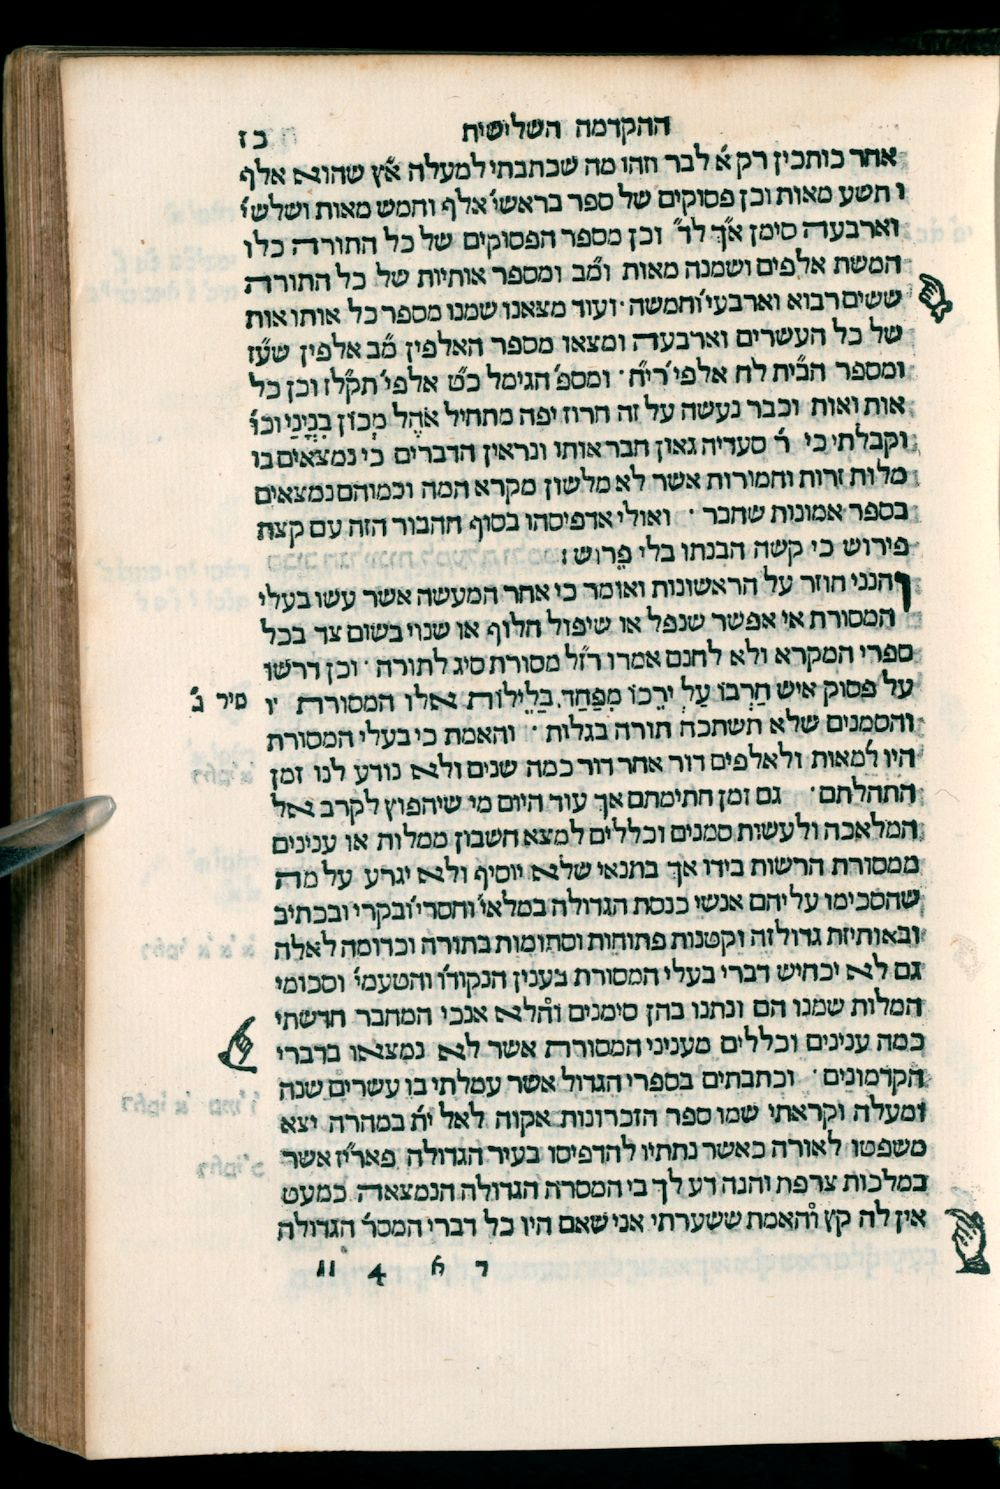 ההקדמה השלישית
כז
אחר כותבין רק א̈ לבר וזהו מה שכתבתי למעלה א״ץ שהוא אלף
ותשע מאות וכן פסוקים של ספר בראשי׳ אלף וחמש מאות ושלשי׳
וארבעה סימן א״ך לד״ וכן מספר הפסוקים של כל התורה כלו
חמשת אלפים ושמנה מאות ומ״ב ומספר אותיות של כל התורה
ששים רבוא וארבעי׳ וחמשה ׳ ועוד מצאנו שמנו מספר כל אות ואות
של כל העשרים וארבעה ומצאו מספר האלפין מ״ב אלפין שע״ז
ומספר הבי״ת לח אלפי׳ רי״ח ׳ ומספ׳ הגימל כ״ט אלפי׳ תקל״ז וכן כל
אות ואות וכבר נעשה על זה חרוז יפה מתחיל אֹהֶל מְכוֹן בִּנְיָנִי וכו׳
וקבלתי כי ר׳ סעדיה גאון חבר אותו ונראין הדברים כי נמצאים בו
מלות זרות וחמורות אשר לא מלשון מקרא המה וכמוהם נמצאים
בספר אמונות שחבר ׳ ואולי אדפיסהו בסוף החבור הזה עם קצת
פירוש כי קשה הבנתו בלי פרוש :
והנני חוזר על הראשונות ואומר כי אחר המעשה אשר עשו בעלי
המסורת אי אפשר שנפל או שיפול חלוף או שנוי בשום צד בכל
ספרי המקרא ולא לחנם אמרו רז״ל מסורת סיג לתורה ׳ וכן דרשו
על פסוק איש חַרְבּוֹ עַל יְרֵכוֹ מִפַּחַד בַּלֵּילוֹת אלו המסורת יו
שיר ג׳
והסמנים שלא תשתכח תורה בגלות ׳ והאמת כי בעלי המסורת
היו למאות ולאלפים דור אחר דור כמה שנים ולא נודע לנו זמן
התחלתם ׳ גם זמן חתימתם אך עוד היום מי שיחפוץ לקרב אל
המלאכה ולעשות סמנים וכללים למצא חשבון ממלות או ענינים
ממסורת הרשות בידו אך בתנאי שלא יוסיף ולא יגרע על מה
שהסכימו עליהם אנשי כנסת הגדולה במלאי׳ וחסרי׳ ובקרי ובכתיב
ובאותיות גדולות וקטנות פתוחות וסתומות בתורה וכדומה לאלה
גם לא יכחיש דברי בעלי המסורת בענין הנקוד׳ והטעמי׳ וסכומי
המלות שמנו הם ונתנו בהן סימנים והלא אנכי המחבר חדשתי
כמה ענינים וכללים מעניני המסורת אשר לא נמצאו בדברי
הקדמונים ׳ וכתבתים בספרי הגדול אשר עמלתי בו עשרים שנה
ומעלה וקראתי שמו ספר הזכרונות אקוה לאל ית׳ במהרה יצא
משפטו לאורה כאשר נתתיו להדפיסו בעיר הגדולה פארי״ז אשר
במלכות צרפת והנה דע לך כי המסרה הגדולה הנמצאה כמעט
אין לה קץ והאמת ששערתי אני שאם היו כל דברי המסר׳ הגדולה
ד א 4 וו